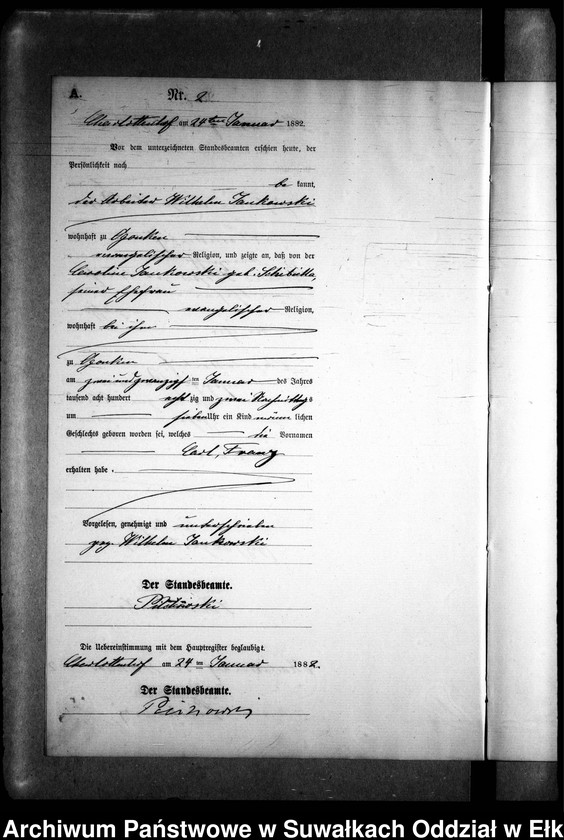 A.
Nr. 2
Charlottenhof am 24ten Januar 1882.
Vor dem unterzeichneten Standesbeamten erschien heute, der
Persönlichkeit nach
be kannt,
der Arbeiter Wilhelm Jankowski
wohnhaft zu
evangelischer Religion, und zeigte an, daß von der
Caroline Jankowski geb.
seiner Ehefrau
evangelischer Religion,
wohnhaft bei ihm
zu
am zwei und zwanzigsten Januar des Jahres
tausend acht hundert acht zig und zwei Nachmittags
um sieben Uhr ein Kind männ lichen
Geschlechts geboren worden sei, welches die Vornamen
Carl, Franz
erhalten habe.
Vorgelesen, genehmigt und unterschrieben
gez. Wilhelm Jankowski
Der Standesbeamte.
Die Uebereinstimmung mit dem Hauptregister beglaubigt.
Charlottenhof am 24 ten Januar 1882.
Der Standesbeamte.
Archiwum Państwowe w Suwałkach Oddział w Ełk